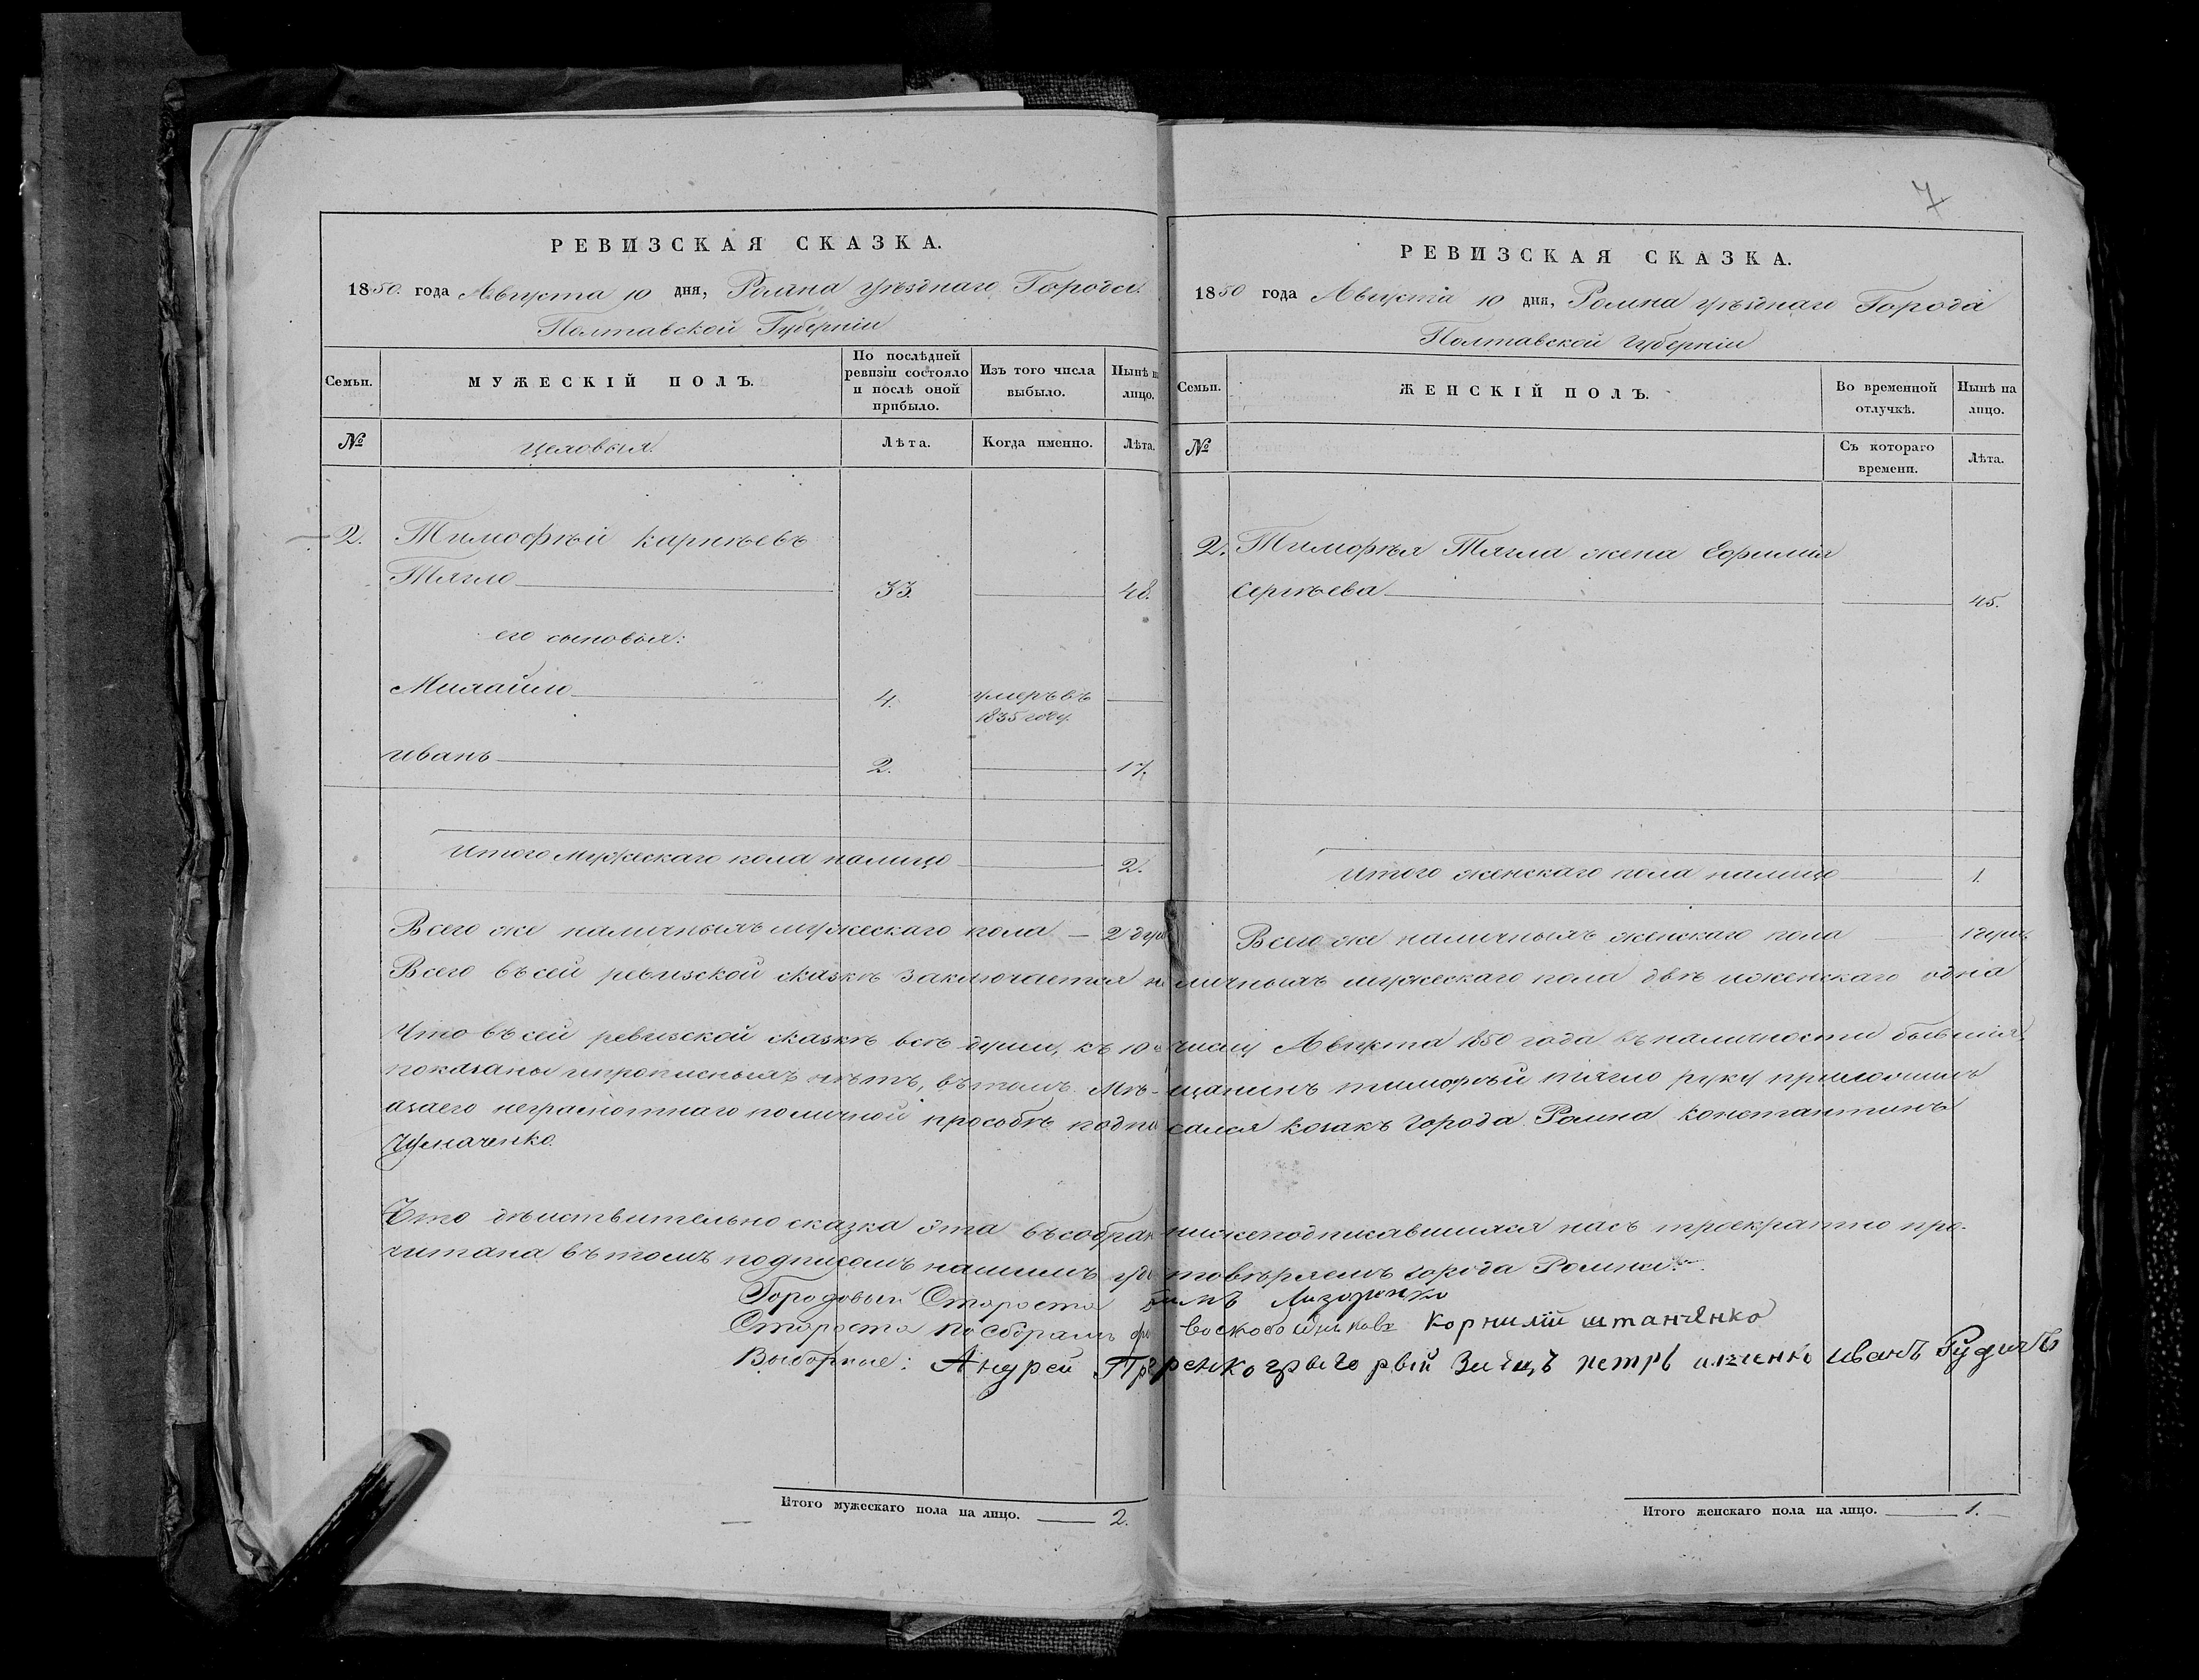 РЕВИЗСКАЯ СКАЗКА.
1850. года Августа 10 дня, Ромна уѣзднаго Города
Полтавской Губерніи
Семьи.
МУЖЕСКІЙ ПОЛЪ.
По послѣдней ревизіи состояло и послѣ оной прибыло.
Изъ того числа выбыло.
Нынѣ на лицо.
№
Цеховыя.
Лѣта.
Когда именно.
Лѣта.
2. Тимофѣй Карнѣевъ
Тягло 33. 48.
его сыновья:
Михайло 4. умеръ въ
1835 году.
Иванъ 2. 17.
Итого мужескаго пола налицо 2.
Всего же наличныхъ мужескаго пола — 2 душ
7
РЕВИЗСКАЯ СКАЗКА.
1850 года Августа 10 дня, Ромна уѣзднаго Города
Полтавской Губерніи
Семьи.
ЖЕНСКІЙ ПОЛЪ.
Во временной отлучкѣ.
Нынѣ на лицо.
№
Съ котораго времени.
Лѣта.
2. Тимофѣя Тягла жена Ефимия
Сергѣева 45.
Итого женскаго пола налицо 1.
Всего же наличныхъ женскаго пола 1 душ
Всего въ сей ревизской сказкѣ заключается наличныхъ мужескаго пола двѣ и женскаго одна
Что въ сей ревизской сказкѣ всѣ души, къ 10 числу Августа 1850 года въ наличности бывшія,
показаны и прописныхъ нѣтъ, въ томъ Мѣщанинъ Тимофѣй Тягло руку приложилъ
азаего неграмотнаго по личной прозбѣ подписался козакъ Города Ромна Константинъ
Чумаченко.
Что дѣйствительно сказка эта въ собран нижеподписавшихся насъ троекратно про-
читана въ томъ подписомъ нашимъ удостовѣряемъ города Ромна.
Городовый Староста Лизоренко
Староста по сборамъ Воскобойниковъ Корнилій штанченко
Выборные: Андрей григорвій Заецъ петръ Иванъ Рудичъ
Итого мужескаго пола на лицо. 2.
Итого женскаго пола на лицо. 1.